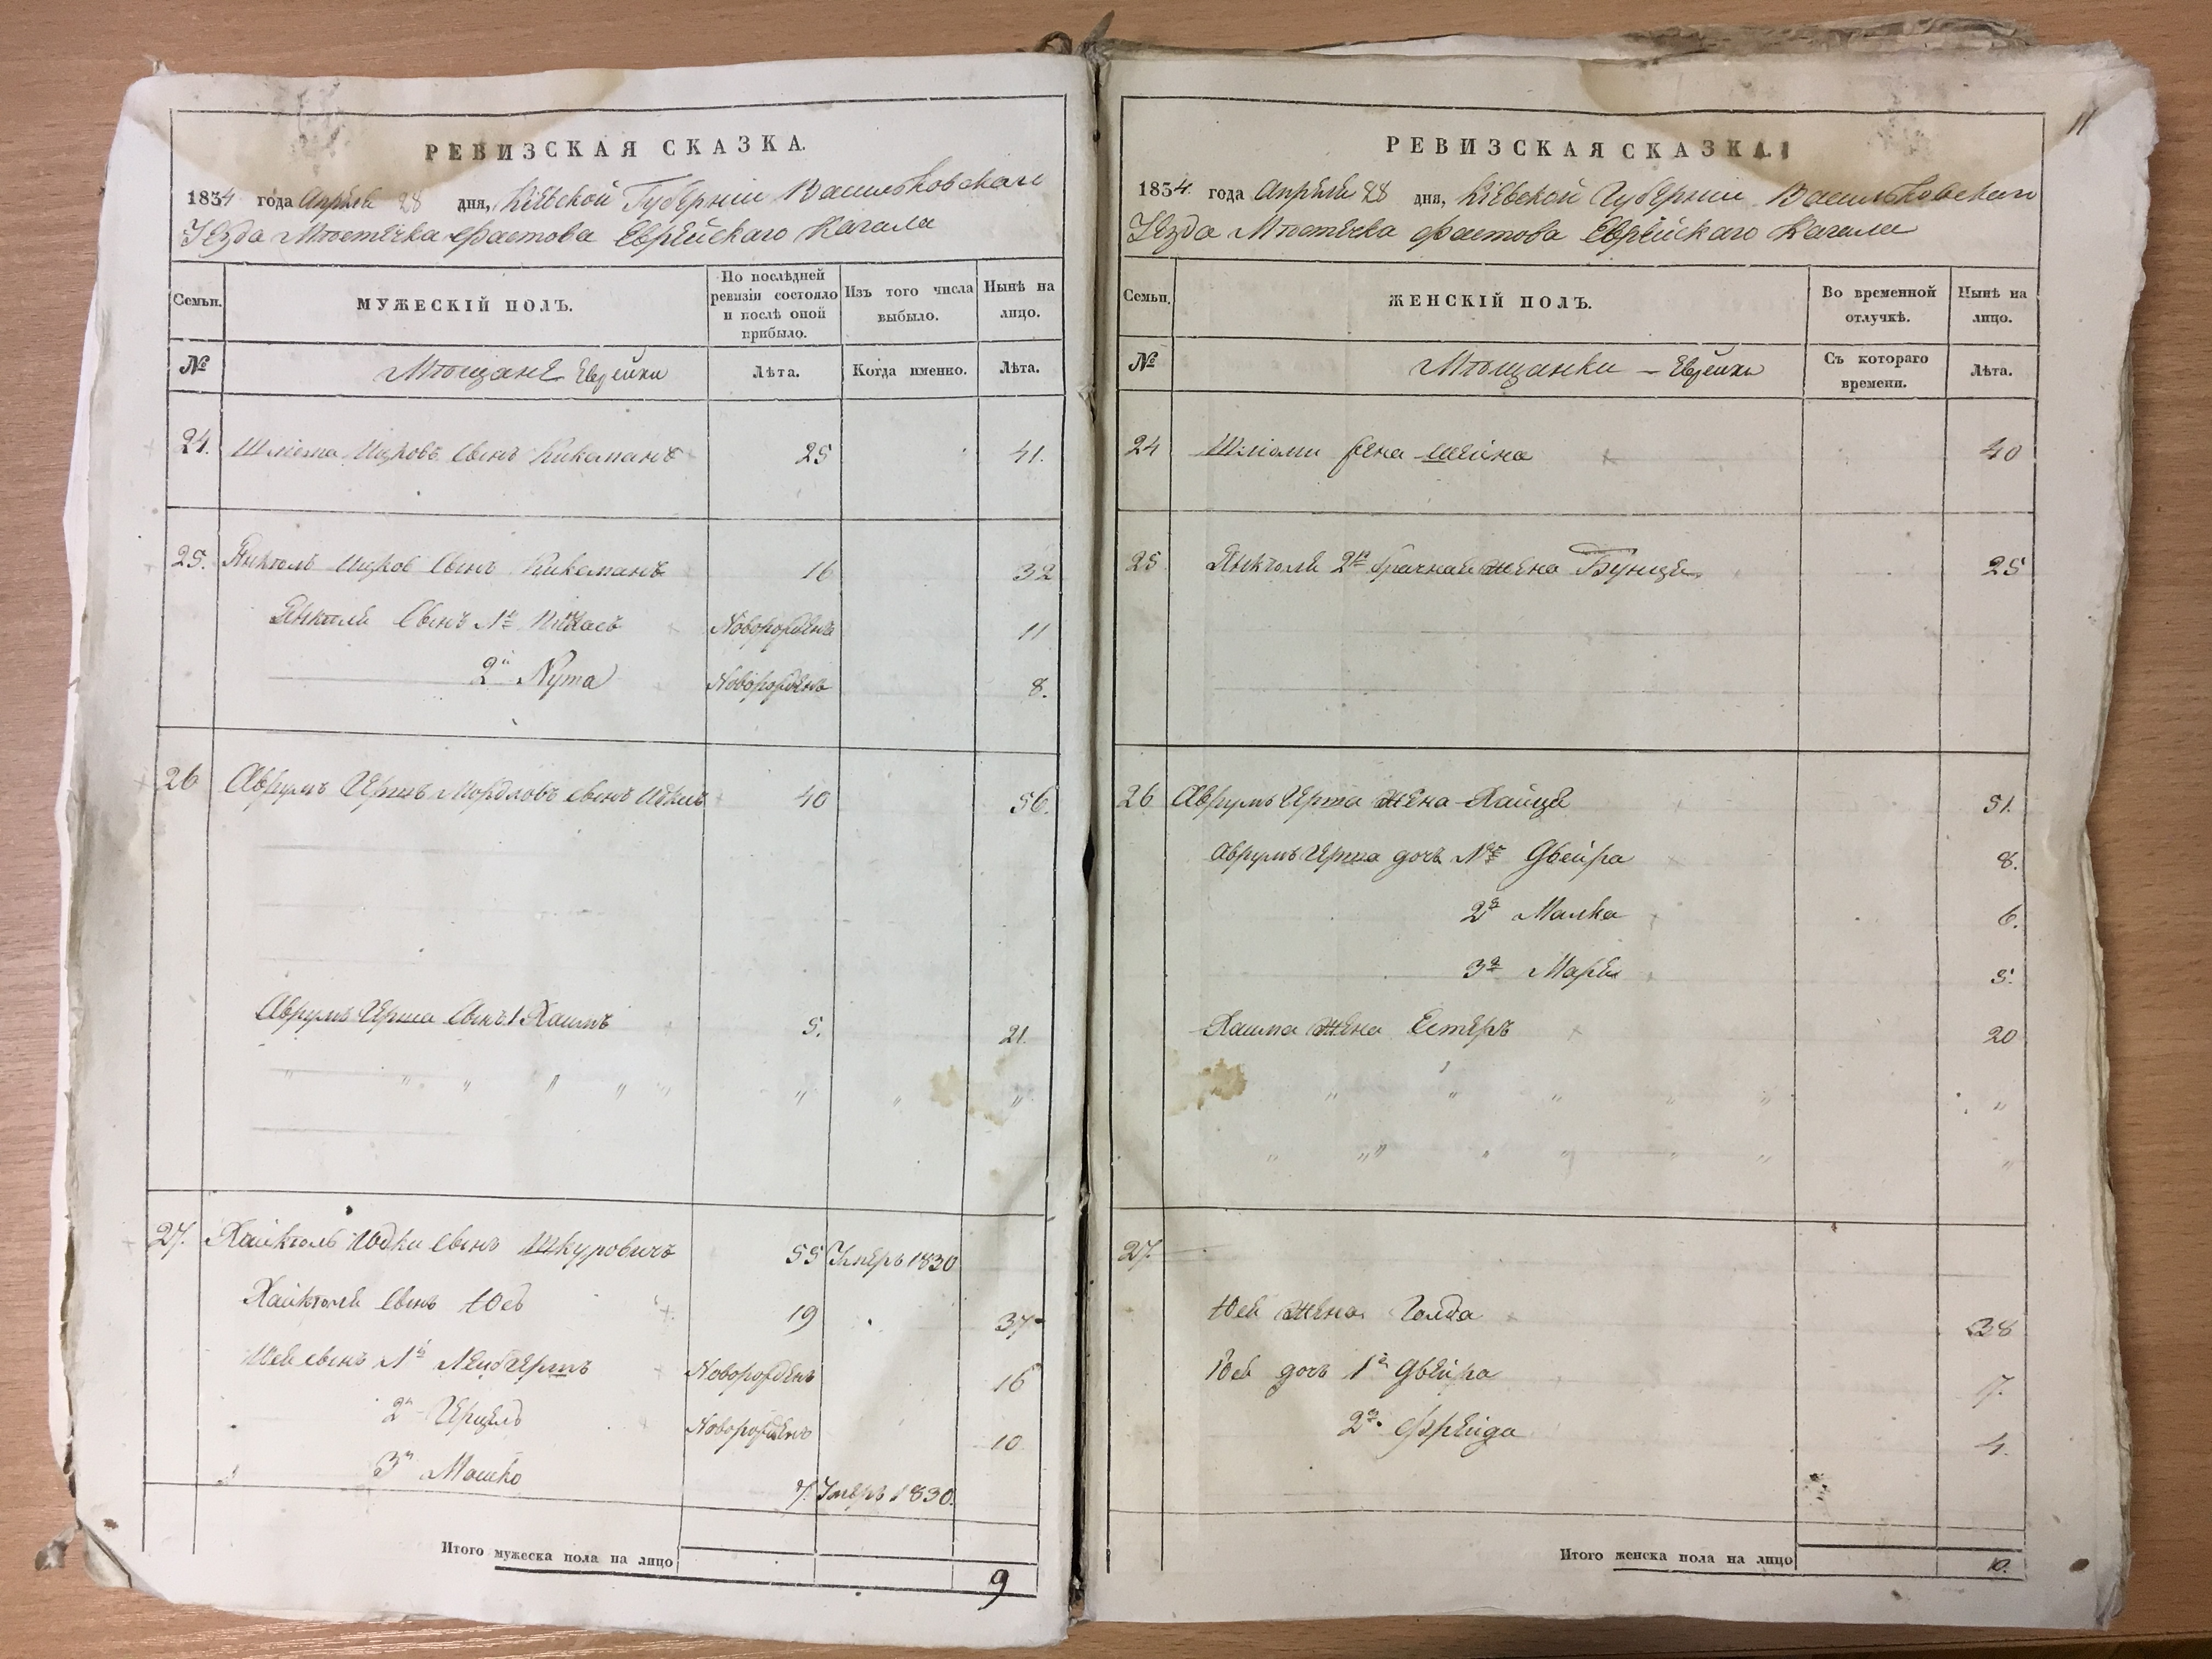 РЕВИЗСКАЯ СКАЗКА.
1834 года Апреля 28 дня, Кіевской Губерніи Васильковскаго
Уѣзда Мѣстечка Фастова Еврейскаго Кагала
Семьи.
МУЖЕСКІЙ ПОЛЪ.
По послѣдней ревизіи состояло и послѣ оной прибыло.
Изъ того числа выбыло.
Нынѣ на лицо.
№
Мѣщане Евреики
Лѣта.
Когда именно.
Лѣта.
24. Шліома сынъ 25 41.
25. Янкель сынъ 16 32
Янкеля сынъ 1й Новорожденъ 11
2й Нута Новорожденъ 8.
26 Аврумъ Герша сынъ 40 56.
Аврумъ Герша сынъ 1 Хаимъ 5. 21.
27. Хайкель Юдки сынъ Шкуровичъ 55 Умеръ 1830
Хайкеля сынъ 19 37
сынъ 1й Лейбъ Гершъ Новорожденъ 16
2й Герцель Новорожденъ 10
3й Мошко 7. Умеръ 1830.
Итого мужеска пола на лицо 9
11
РЕВИЗСКАЯ СКАЗКА.
1834 года Апрѣля 28 дня, Кіевской Губерніи Васильковскаго
Уѣзда Мѣстечка Фастова Еврейскаго Кагала
Семьи.
ЖЕНСКІЙ ПОЛЪ.
Во временной отлучкѣ.
Нынѣ на лицо.
№
Мѣщанки — Евреики
Съ котораго времени.
Лѣта.
24 Шліоми жена Шейна 40
25 Янкеля 2я брачная жена Бунця 25
26 Аврумъ Герша жена Хайця 51.
Аврумъ Герша дочь 1я Двейра 8.
2я Малка 6.
3я Марья 5.
Хаима жена Естеръ 20
27.
жена Голда 38
дочь 1я Двейра 7.
2я Фрейда 4.
Итого женска пола на лицо 10.